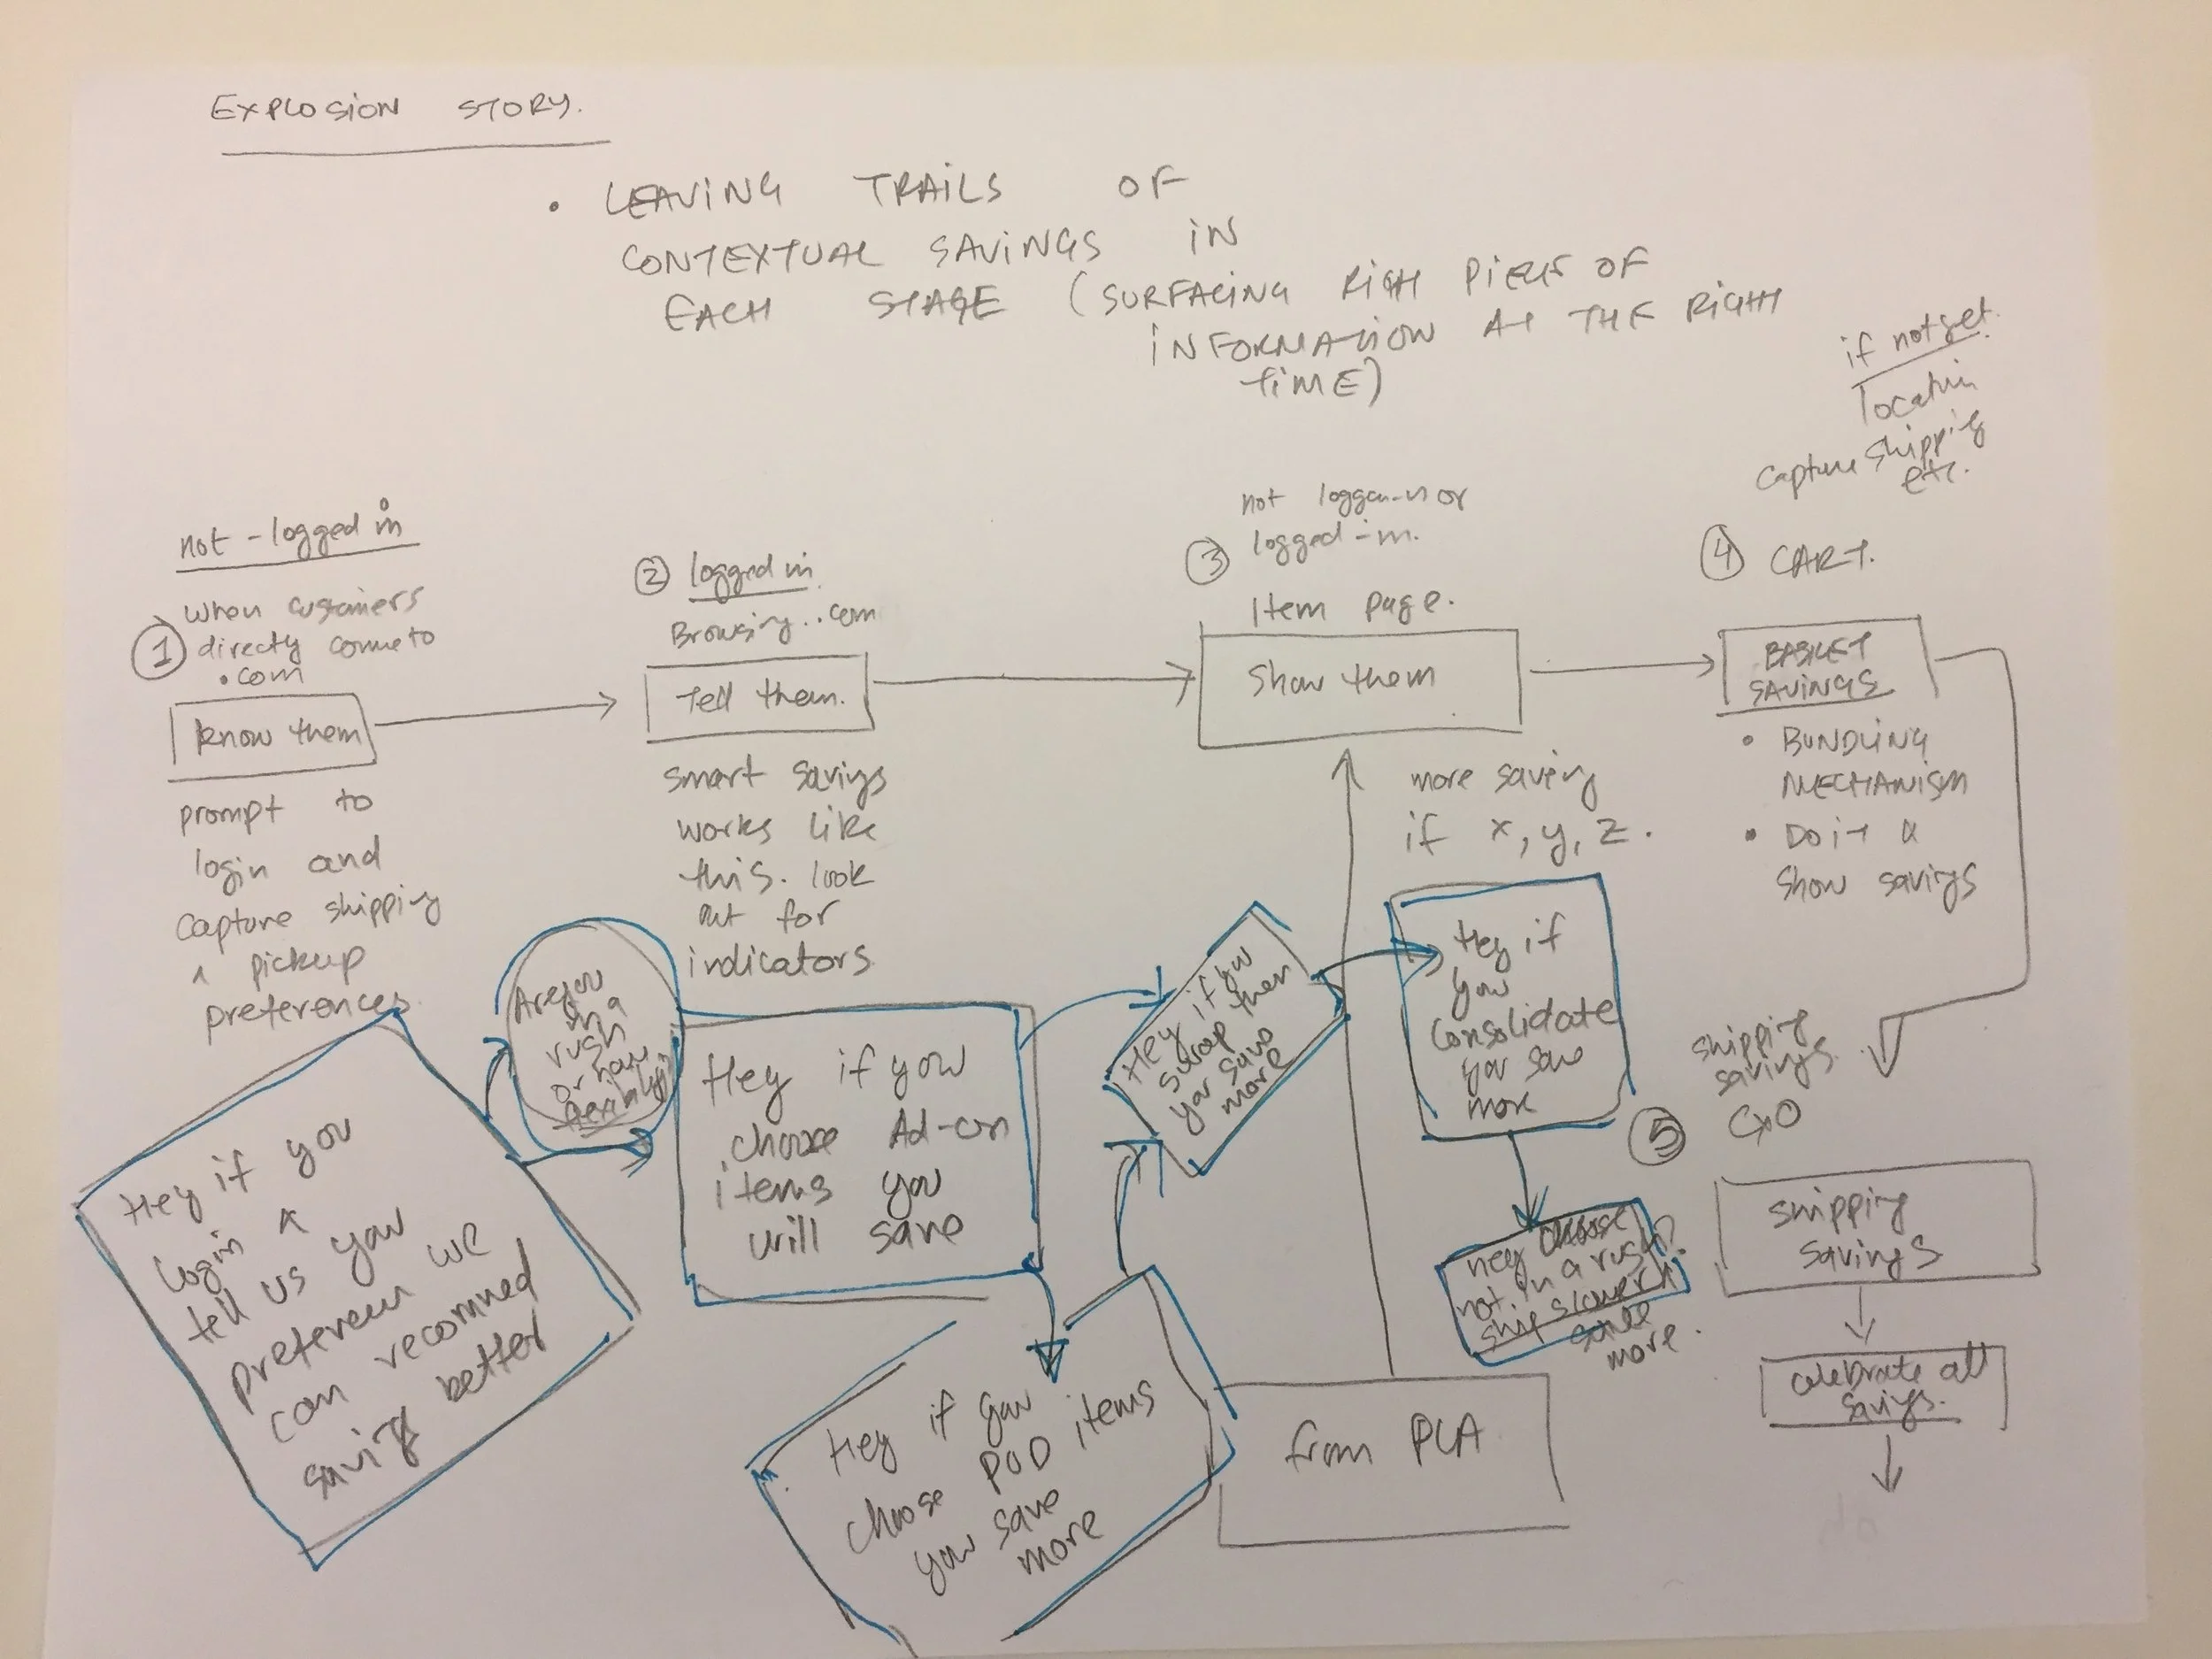 EXPLOSION STORY.
• LEAVING TRAILS OF
CONTEXTUAL SAVINGS IN
EACH STAGE (SURFACING RIGH PIECES OF
INFORMATION AT THE RIGHT
TIME)
if not set.
location
capture shipping
etc.
not-logged in
1
when customers
directly come to
.com
know them
prompt to
login and
capture shipping
^ pickup
preferences.
2 logged in
Browsing..com
Tell them.
smart savings
works like
this. look
out for
indicators
3
not logged-in or
logged-in.
Item page.
Show them
more saving
if x, y, z.
4 CART.
BASKET
SAVINGS
• BUNDLING
MECHANISM
• Do it &
show savings
Hey if you
login &
tell us your
preferences we
can recommed
saving better
Are you
in a
rush
or have
flexibility
Hey if you
choose Ad-on
items you
will save
Hey if you
choose POD items
you save
more
Hey if you
swap then
you save
more
Hey if
you
consolidate
you save
more
hey choose
not in a rush?
ship slower &
save
more.
from PLA
5
shipping
savings
CXO
shipping
savings
celebrate all
savings.